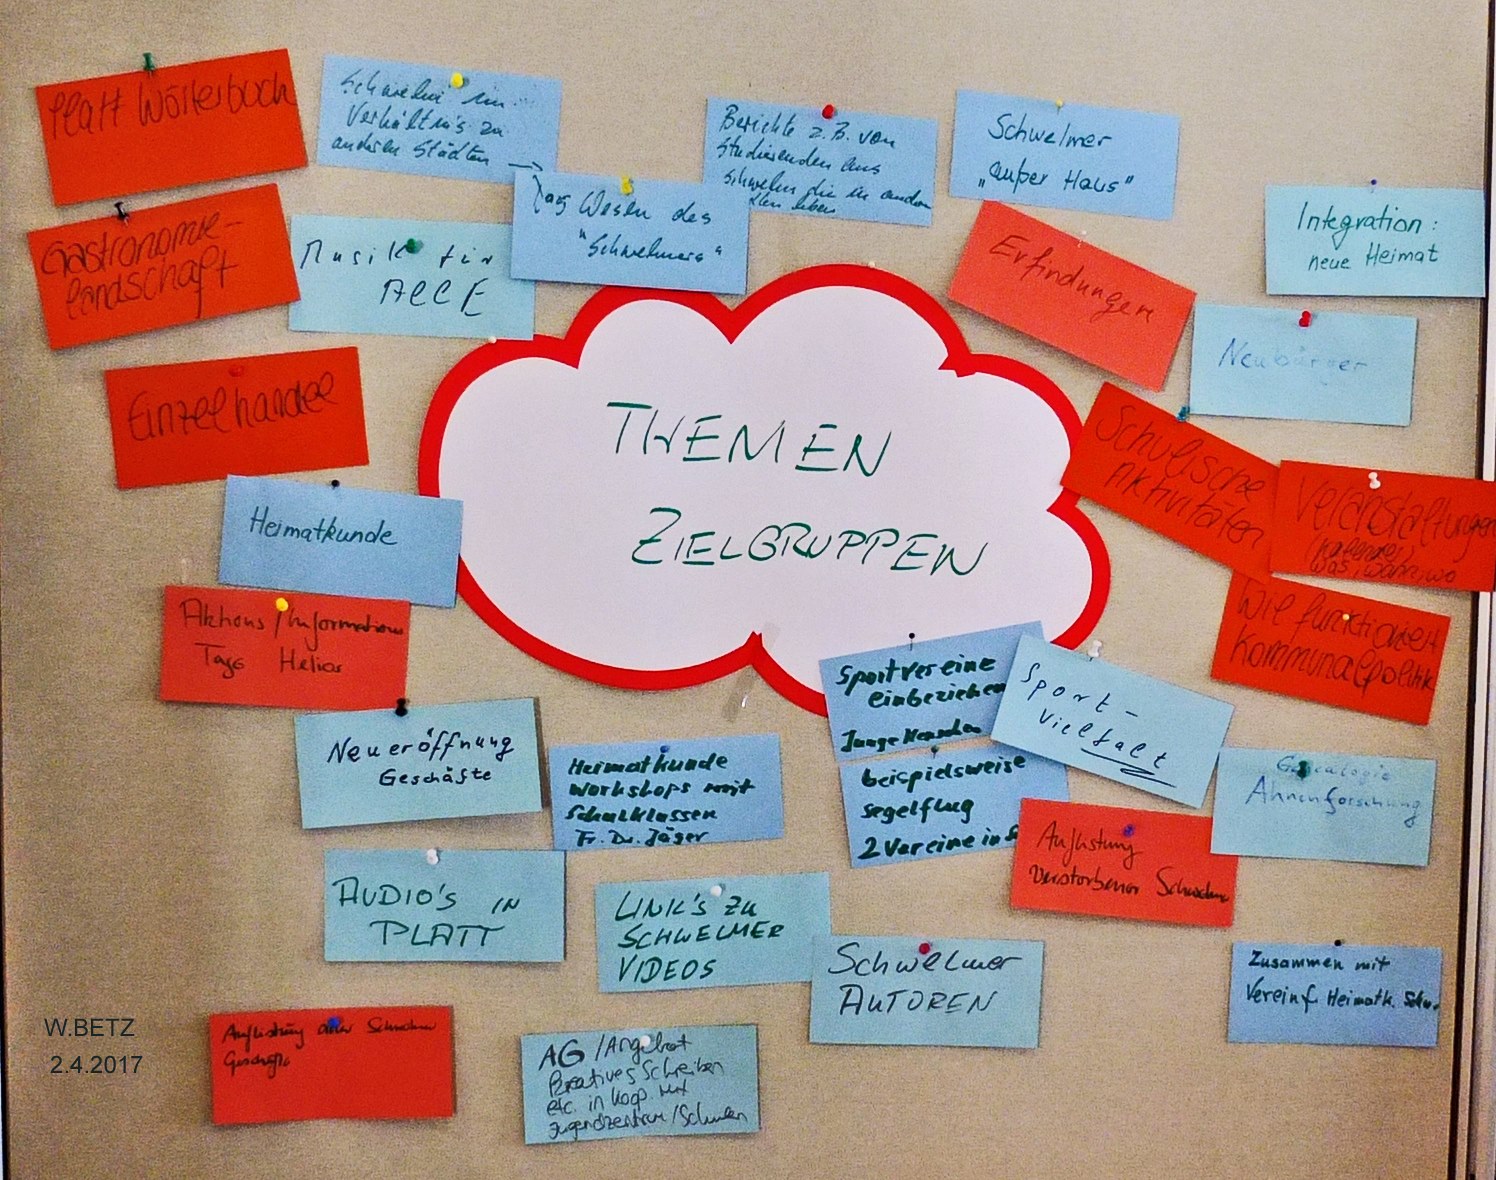 Platt Wörterbuch
Schwelm im
Verhältnis zu
anderen Städten
Wesen des
"Schwelmers"
Berichte z.B. von
Studierenden aus
Schwelm die in andern
leben
Schwelmer
„außer Haus"
Integration:
neue Heimat
Gastronomie-
landschaft
Musik für
ALLE
Erfindungen
Neubürger
Einzelhandel
THEMEN
ZIELGRUPPEN
Schulische
Aktivitäten
Veranstaltungen
(Kalender)
was, wann, wo
Heimatkunde
Aktions/Informations
Tage Helios
Wie funktioniert
Kommunalpolitik
Sportvereine
einbeziehen
Junge Menschen
Sport-
vielfalt
Neueröffnung
Geschäfte
Heimatkunde
Workshops mit
Schulklassen
Fr. Dr. Jäger
beispielsweise
Segelflug
2 Vereine in
Genealogie
Ahnenforschung
Auflistung
verstorbener Schwelmer
AUDIO'S IN
PLATT
LINK'S ZU
SCHWELMER
VIDEOS
Schwelmer
AUTOREN
Zusammen mit
Verein f. Heimatk. Schw.
W.BETZ
2.4.2017
Auflistung aller Schwelmer
Geschäfte
AG/Angebot
Kreatives Schreiben
etc. in Koop mit
Jugendzentrum/Schulen